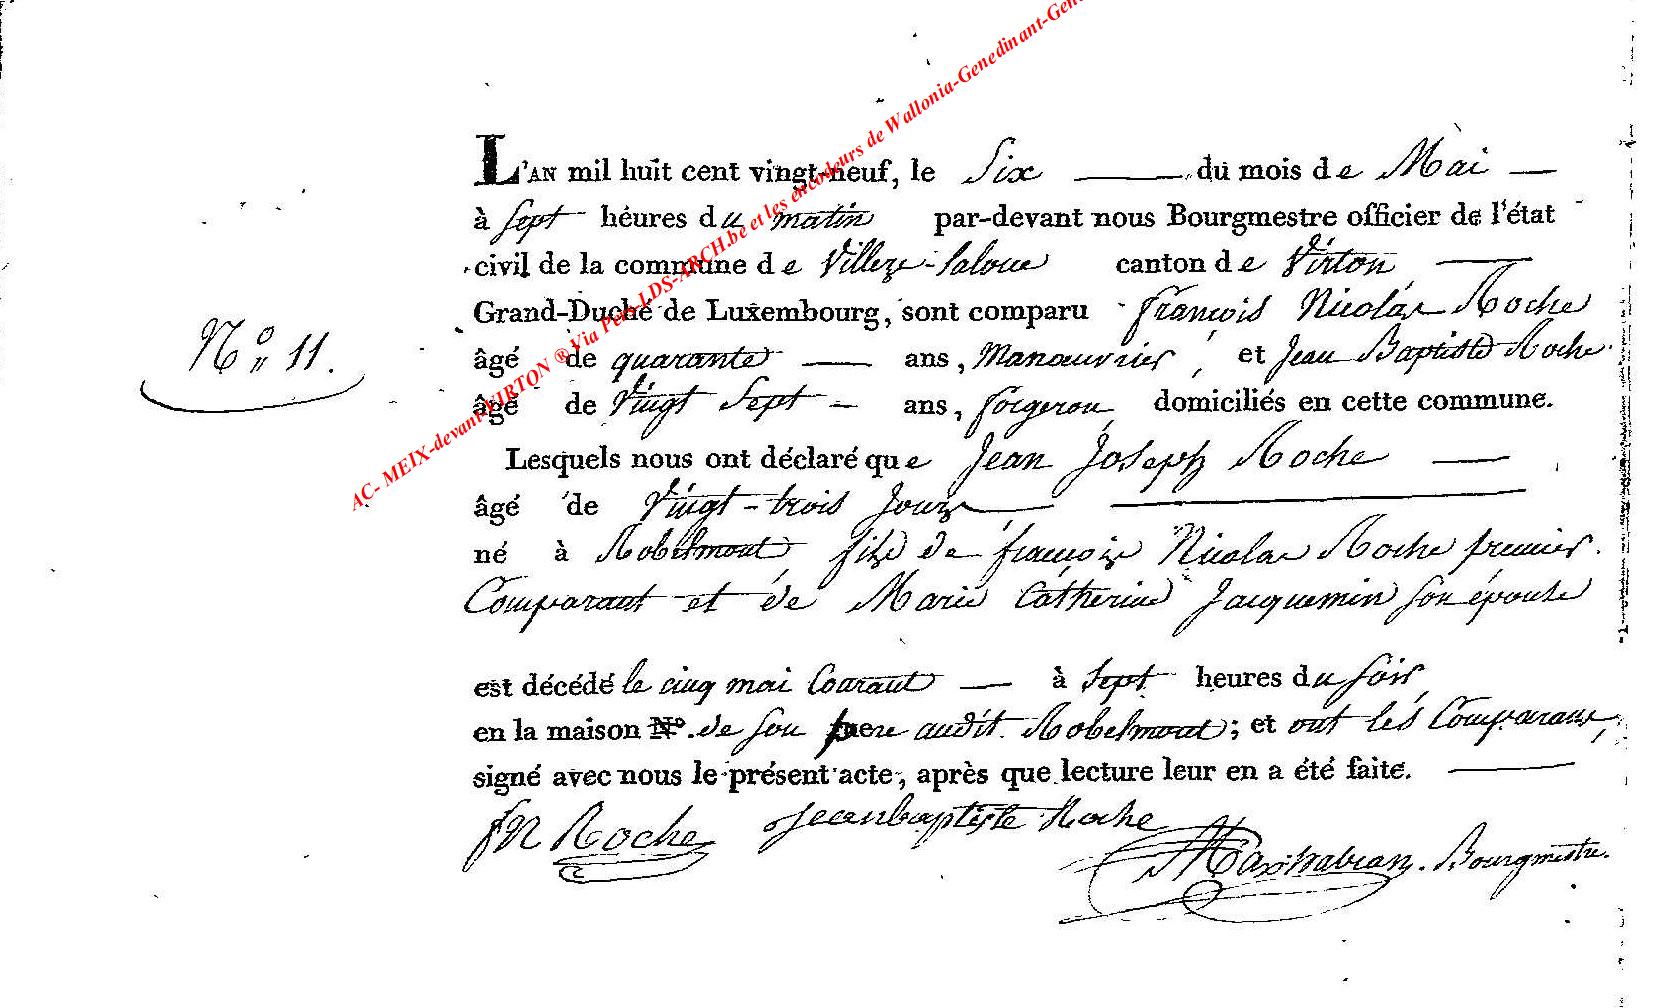 AC- MEIX-devant-VIRTON ® Via Pers-LDS-ARCH.be et les encodeurs de Wallonia-Genedinant-Gen
L'AN mil huit cent vingt-neuf, le Six du mois de Mai
à sept heures du matin par-devant nous Bourgmestre officier de l'état
civil de la commune de Villers-laloue canton de Virton
Grand-Duché de Luxembourg, sont comparu françois Nicolas Roche
N° 11.
âgé de quarante ans, Manœuvrier, et Jean Baptiste Roche
âgé de Vingt Sept ans, forgeron, domiciliés en cette commune.
Lesquels nous ont déclaré que Jean Joseph Roche
âgé de Vingt-trois Jours
né à Robelmont fils de françois Nicolas Roche premier
Comparant et de Marie Catherine Jacquemin son épouse
est décédé le cinq mai Courant à Sept heures du soir
en la maison N°. de son pere audit Robelmont; et ont les Comparans,
signé avec nous le présent acte, après que lecture leur en a été faite.
fN Roche Jean baptiste Roche
Bourgmestre.